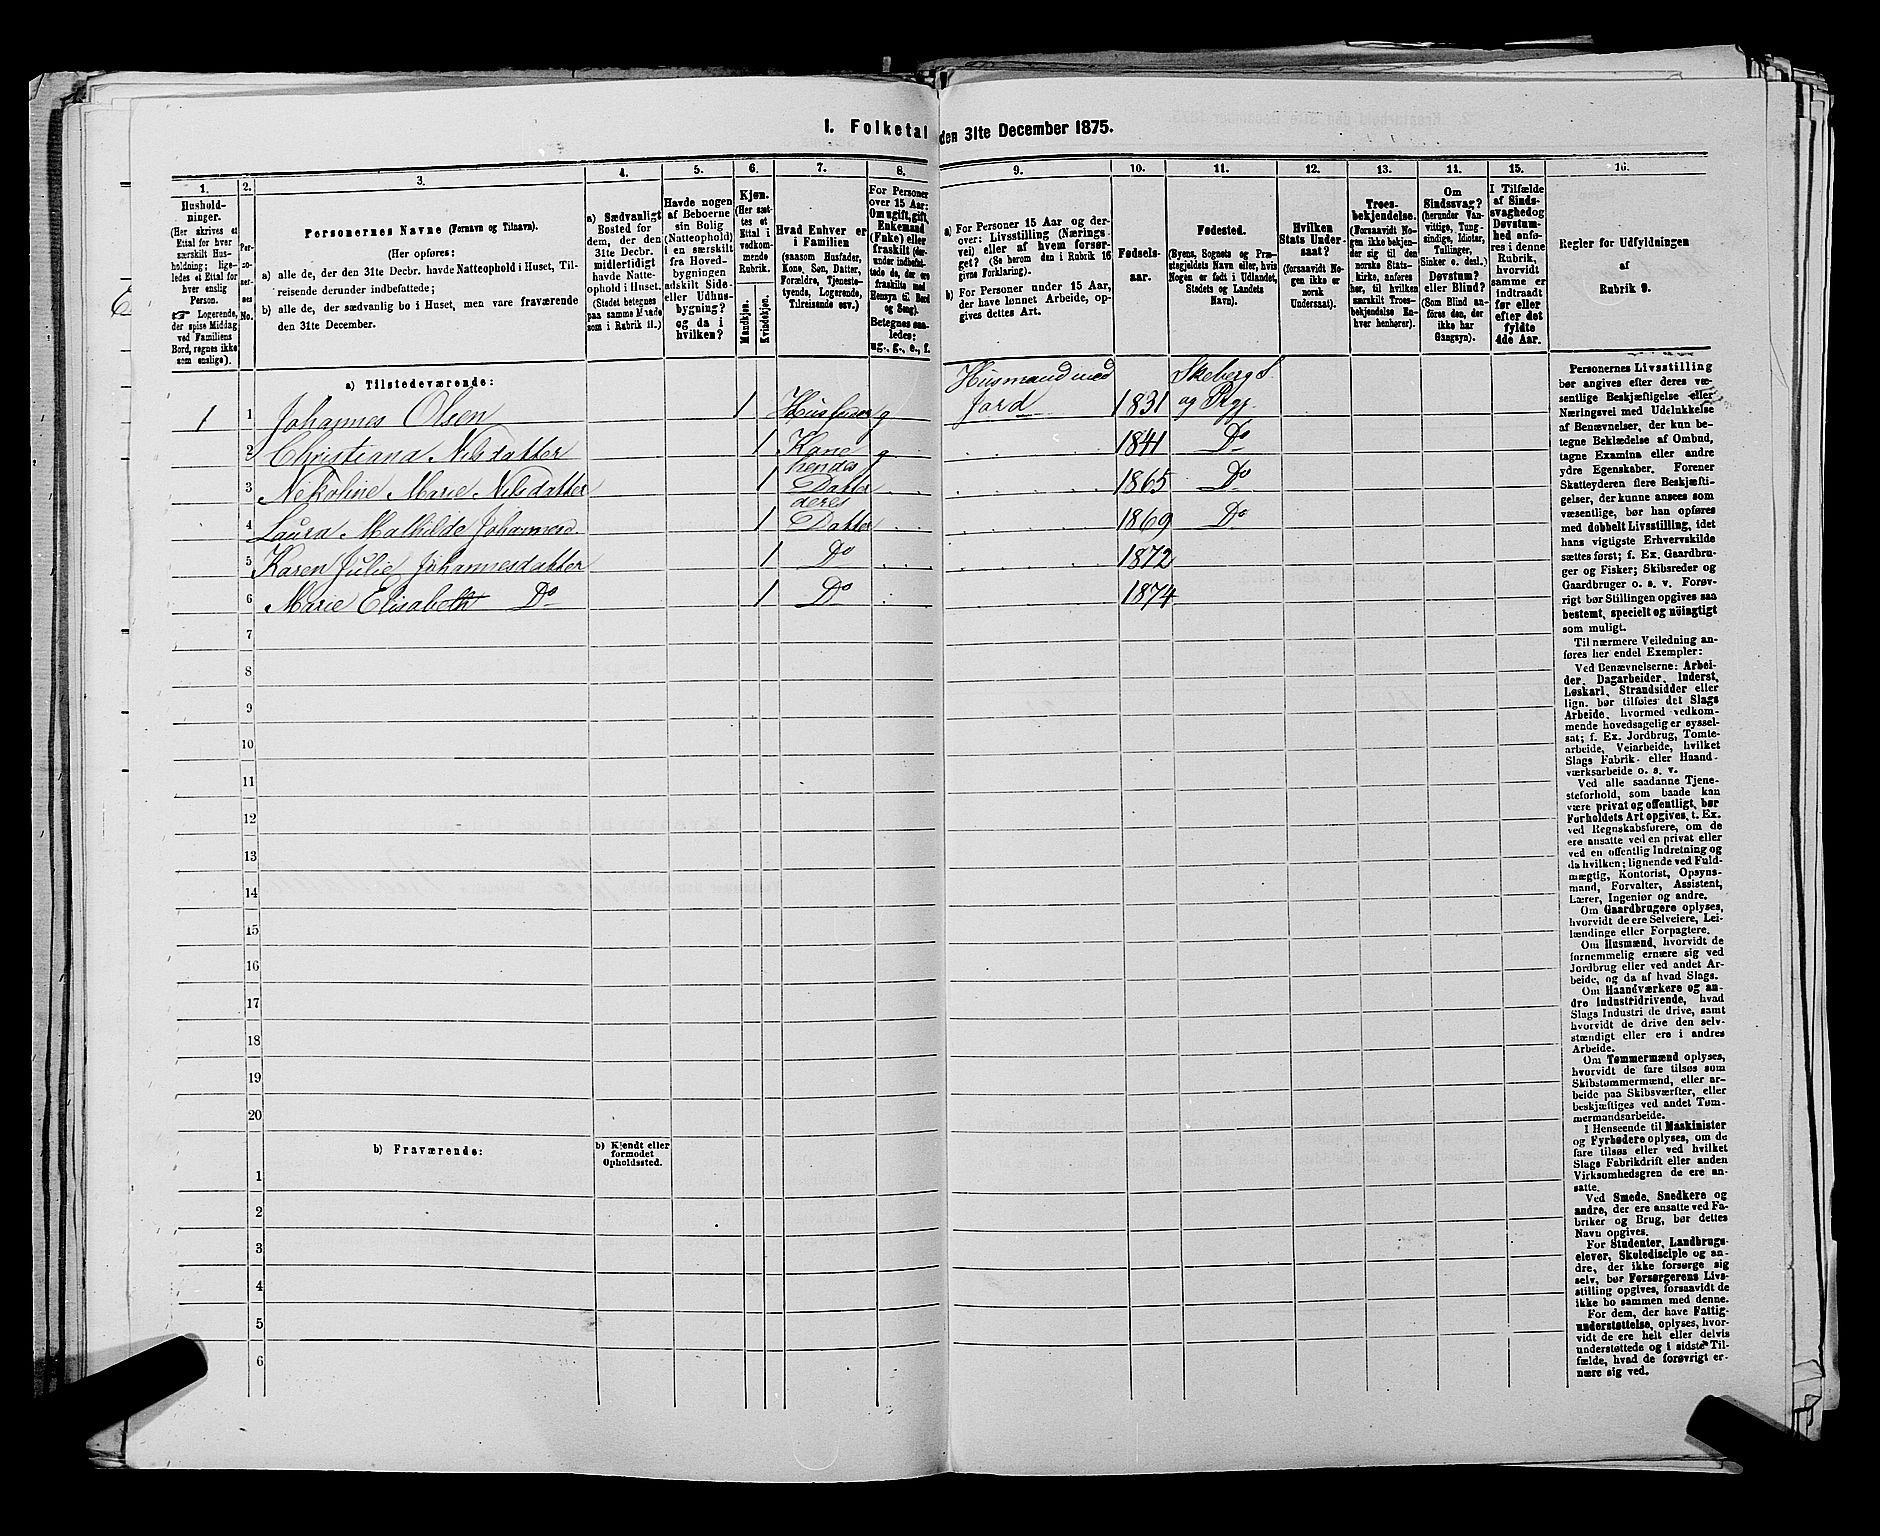 1. Folketal den 31te December 1875.
1.
2.
3.
4.
5.
6.
7.
8.
9.
10.
11.
12.
13.
11.
15.
16.
Hushold-
ninger.
(Her skrives et
Ettal for hver
særskilt Hus-
holdning; lige-
ledes et Ettal for
hver enslig
Person.
☞ Logerende,
der spise Middag
ved Familiens
Bord, regnes ikke
som enslige).
Per-
so-
ner-
nes
No.
Personernes Navne (Fornavn og Tilnavn).
(Her opføres:
a) alle de, der den 31te Decbr. havde Natteophold i Huset, Til-
reisende derunder indbefattede;
b) alle de, der sædvanlig bo i Huset, men vare fraværende
den 31te December.
a) Sædvanligt
Bosted for
dem, der den
31te Decbr.
midlertidigt
havde Natte-
ophold i Huset.
(Stedet betegnes
paa samme Maade
som i Rubrik 11.)
Havde nogen
af Beboerne
sin Bolig
(Natteophold)
i en særskilt
fra Hoved-
bygningen
adskilt Side-
eller Udhus-
bygning?
og da i
hvilken?
Kjøn.
(Her sæt-
tes et
Ettal i
vedkom-
mende
Rubrik.
Mandkjøn.
Kvindekjøn.
Hvad Enhver er
i Familien
(saasom Husfader,
Kone, Søn, Datter,
Forældre, Tjeneste-
tyende, Logerende,
Tilreisende osv.)
For Personer
over 15 Aar:
Om ugift, gift,
Enkemand
(Enke) eller
fraskilt (der-
under indbefat-
tede de, der ere
fraskilte med
Hensyn til Bord
og Seng).
Betegnes saa-
ledes:
ug., g., e., f.
a) For Personer 15 Aar og der-
over: Livsstilling (Nærings-
vei) eller af hvem forsør-
get? (Se herom den i Rubrik 16
givne Forklaring).
b) For Personer under 15 Aar,
der have lønnet Arbeide, op-
gives dettes Art.
Fødsels-
aar.
Fødested.
(Byens, Sognets og Præ-
stegjeldets Navn eller, hvis
Nogen er født i Udlandet,
Stedets og Landets
Navn).
Hvilken
Stats Under-
saat?
(forsaavidt No-
gen ikke er
norsk
Undersaat).
Troes-
bekjendelse.
(Forsaavidt No-
gen ikke bekjen-
der sig til den
norske Stats-
kirke, anføres
her, til hvilken
særskilt Troes-
bekjendelse En-
hver henhører).
Om
Sindssvag?
(herunder Van-
vittige, Tung-
sindige, Idioter,
Tullinger,
Sinker o. desl.)
Døvstum?
eller Blind?
(Som Blind an-
føres den, der
ikke har
Gangsyn).
I Tilfælde
af Sinds-
svaghed og
Døvstum-
hed anfø-
res i denne
Rubrik,
hvorvidt
samme er
indtraadt
før eller
efter det
fyldte
4de Aar.
Regler for Udfyldningen
af
Rubrik 9.
a) Tilstedeværende:
1 1 Johannes Olsen 1 Husfader g Husmand med Jord 1831 Skeberg S. og Prgj.
2 Christiana Nilsdatter 1 Kone g 1841 Do
3 Nikoline Marie Nilsdatter 1 hendes Datter 1865 Do
4 Laura Mathilde Johannesd. 1 deres Datter 1869 Do
5 Karen Julie Johannesdatter 1 Do 1872
6 Marie Elisabeth Do 1 Do 1874
7
8
9
10
11
12
13
14
15
16
17
18
19
20
b) Fraværende:
b) Kjendt eller
formodet
Opholdssted.
1
2
3
4
5
6
Personernes Livsstilling
bør angives efter deres væ-
sentlige Beskjæftigelse eller
Næringsvei med Udelukkelse
af Benævnelser, der kun be-
tegne Beklædelse af Ombud,
tagne Examina eller andre
ydre Egenskaber. Forener
Skatteyderen flere Beskjæfti-
gelser, der kunne ansees som
væsentlige, bør han opføres
med dobbelt Livsstilling, idet
hans vigtigste Erhvervskilde
sættes først; f. Ex. Gaardbru-
ger og Fisker; Skibsreder og
Gaardbruger o. s. v. Forøv-
rigt bør Stillingen opgives saa
bestemt, specielt og nöiagtigt
som muligt.
Til nærmere Veiledning an-
føres her endel Exempler:
Ved Benævnelserne: Arbei-
der, Dagarbeider, Inderst,
Løskarl, Strandsidder eller
lign. bør tilføies det Slags
Arbeide, hvormed vedkom-
mende hovedsagelig er syssel-
sat; f. Ex. Jordbrug, Tomte-
arbeide, Veiarbeide, hvilket
Slags Fabrik- eller Haand-
værksarbeide o. s. v.
Ved alle saadanne Tjene-
steforhold, som baade kan
være privat og offentligt, bør
Forholdets Art opgives, t. Ex.
ved Regnskabsførere, om de
ere ansatte ved en privat eller
ved en offentlig Indretning og
da hvilken; lignende ved Fuld-
mægtig, Kontorist, Opsyns-
mand, Forvalter, Assistent,
Lærer, Ingeniør og andre.
Om Gaardbrugere oplyses,
hvorvidt de ere Selveiere, Lei-
lændinge eller Forpagtere.
Om Husmænd, hvorvidt de
fornemmelig ernære sig ved
Jordbrug eller ved andet Ar-
beide, og da af hvad Slags.
Om Haandværkere og an-
dre Industridrivende, hvad
Slags Industri de drive, samt
hvorvidt de drive den selv-
stændigt eller ere i andres
Arbeide.
Om Tømmermænd oplyses,
hvorvidt de fare tilsøs som
Skibstømmermænd, eller ar-
beide paa Skibsværfter, eller
beskjæftiges ved andet Tøm-
mermandsarbeide.
I Henseende til Maskinister
og Fyrbødere oplyses, om de
fare tilsøs eller ved hvilket
Slags Fabrikdrift eller anden
Virksomhedsgren de ere an-
satte.
Ved Smede, Snedkere og
andre, der ere ansatte ved Fa-
briker og Brug, bør dettes
Navn opgives.
For Studenter, Landbrugs-
elever, Skoledisciple og an-
dre, der ikke forsørge sig
selv, bør Forsørgerens Livs-
stilling opgives, forsaavidt de
ikke bo sammen med denne.
For dem, der have Fattig-
understøttelse, oplyses, hvor-
vidt de ere helt eller delvis
understøttede og i sidste Til-
fælde, hvad de forøvrigt er-
nære sig ved.